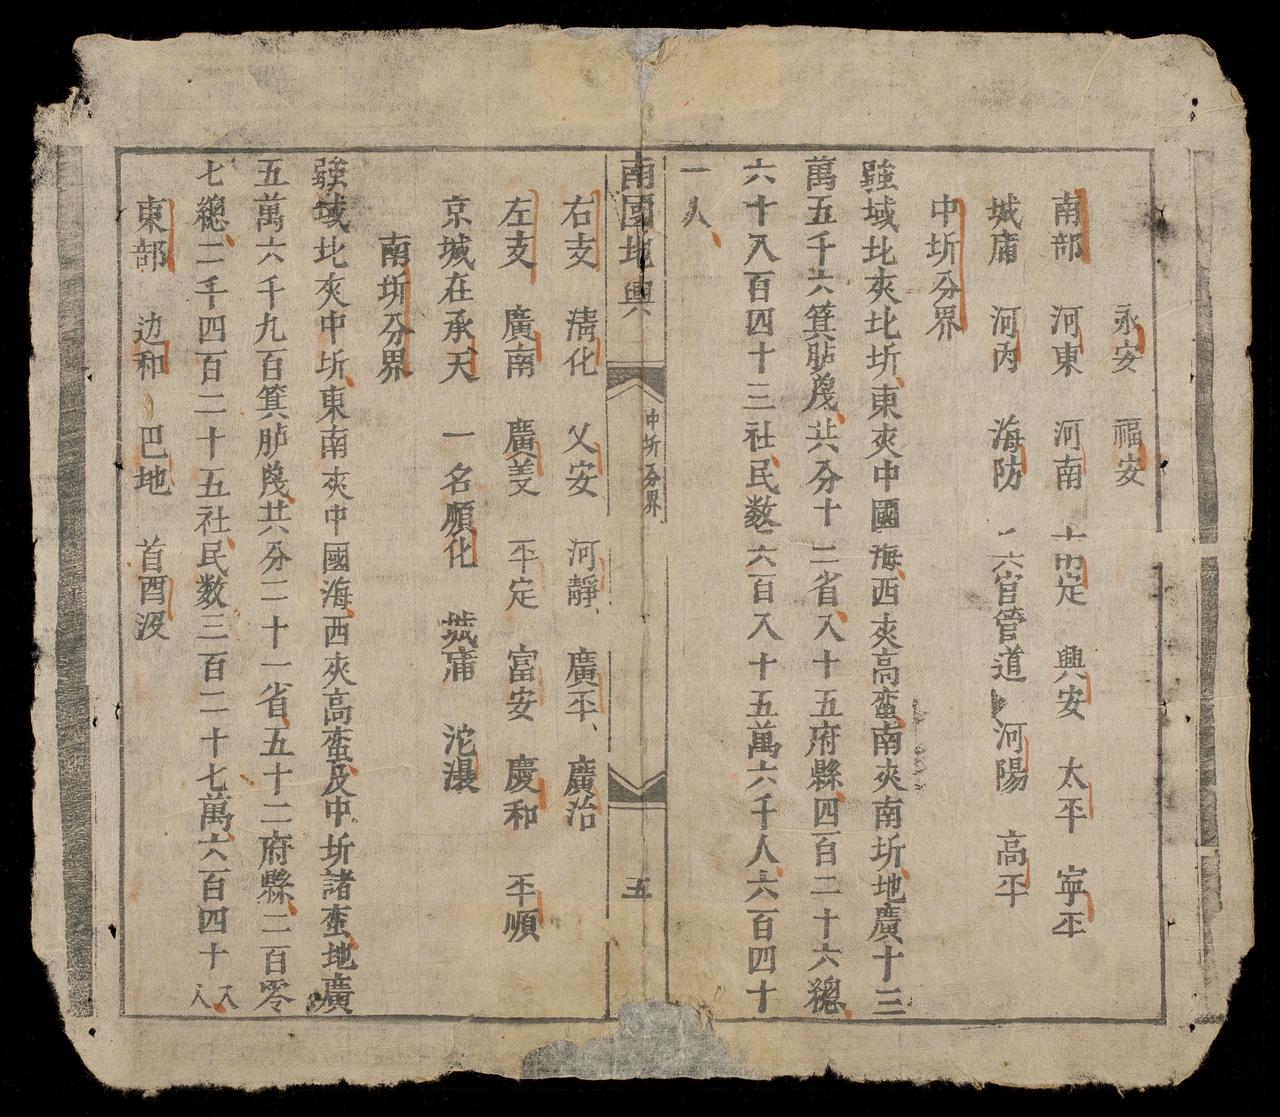 永安 福安
南部 河東 河南 南定 興安 太平 寧平
城庯 河內 海防 六官管道 河陽 高平
中圻分界
疆域北夾北圻東夾中國海西夾高蛮南夾南圻地廣十三
萬五千六箕胪㡬共分十二省八十五府縣四百二十六總
六十八百四十三社民数六百八十五萬六千人六百四十
一人
南國地輿
中圻分界
五
右支 清化 乂安 河靜 廣平 廣治
左支 廣南 廣義 平定 富安 慶和 平順
京城在承天 一名順化 城庯 沱㶞
南圻分界
疆域北夾中圻東南夾中國海西夾高蛮及中圻諸蛮地廣
五萬六千九百箕胪㡬共分二十一省五十二府縣二百零
七總二千四百二十五社民数三百二十七萬六百四十八人
東部 边和 巴地 首酉沒